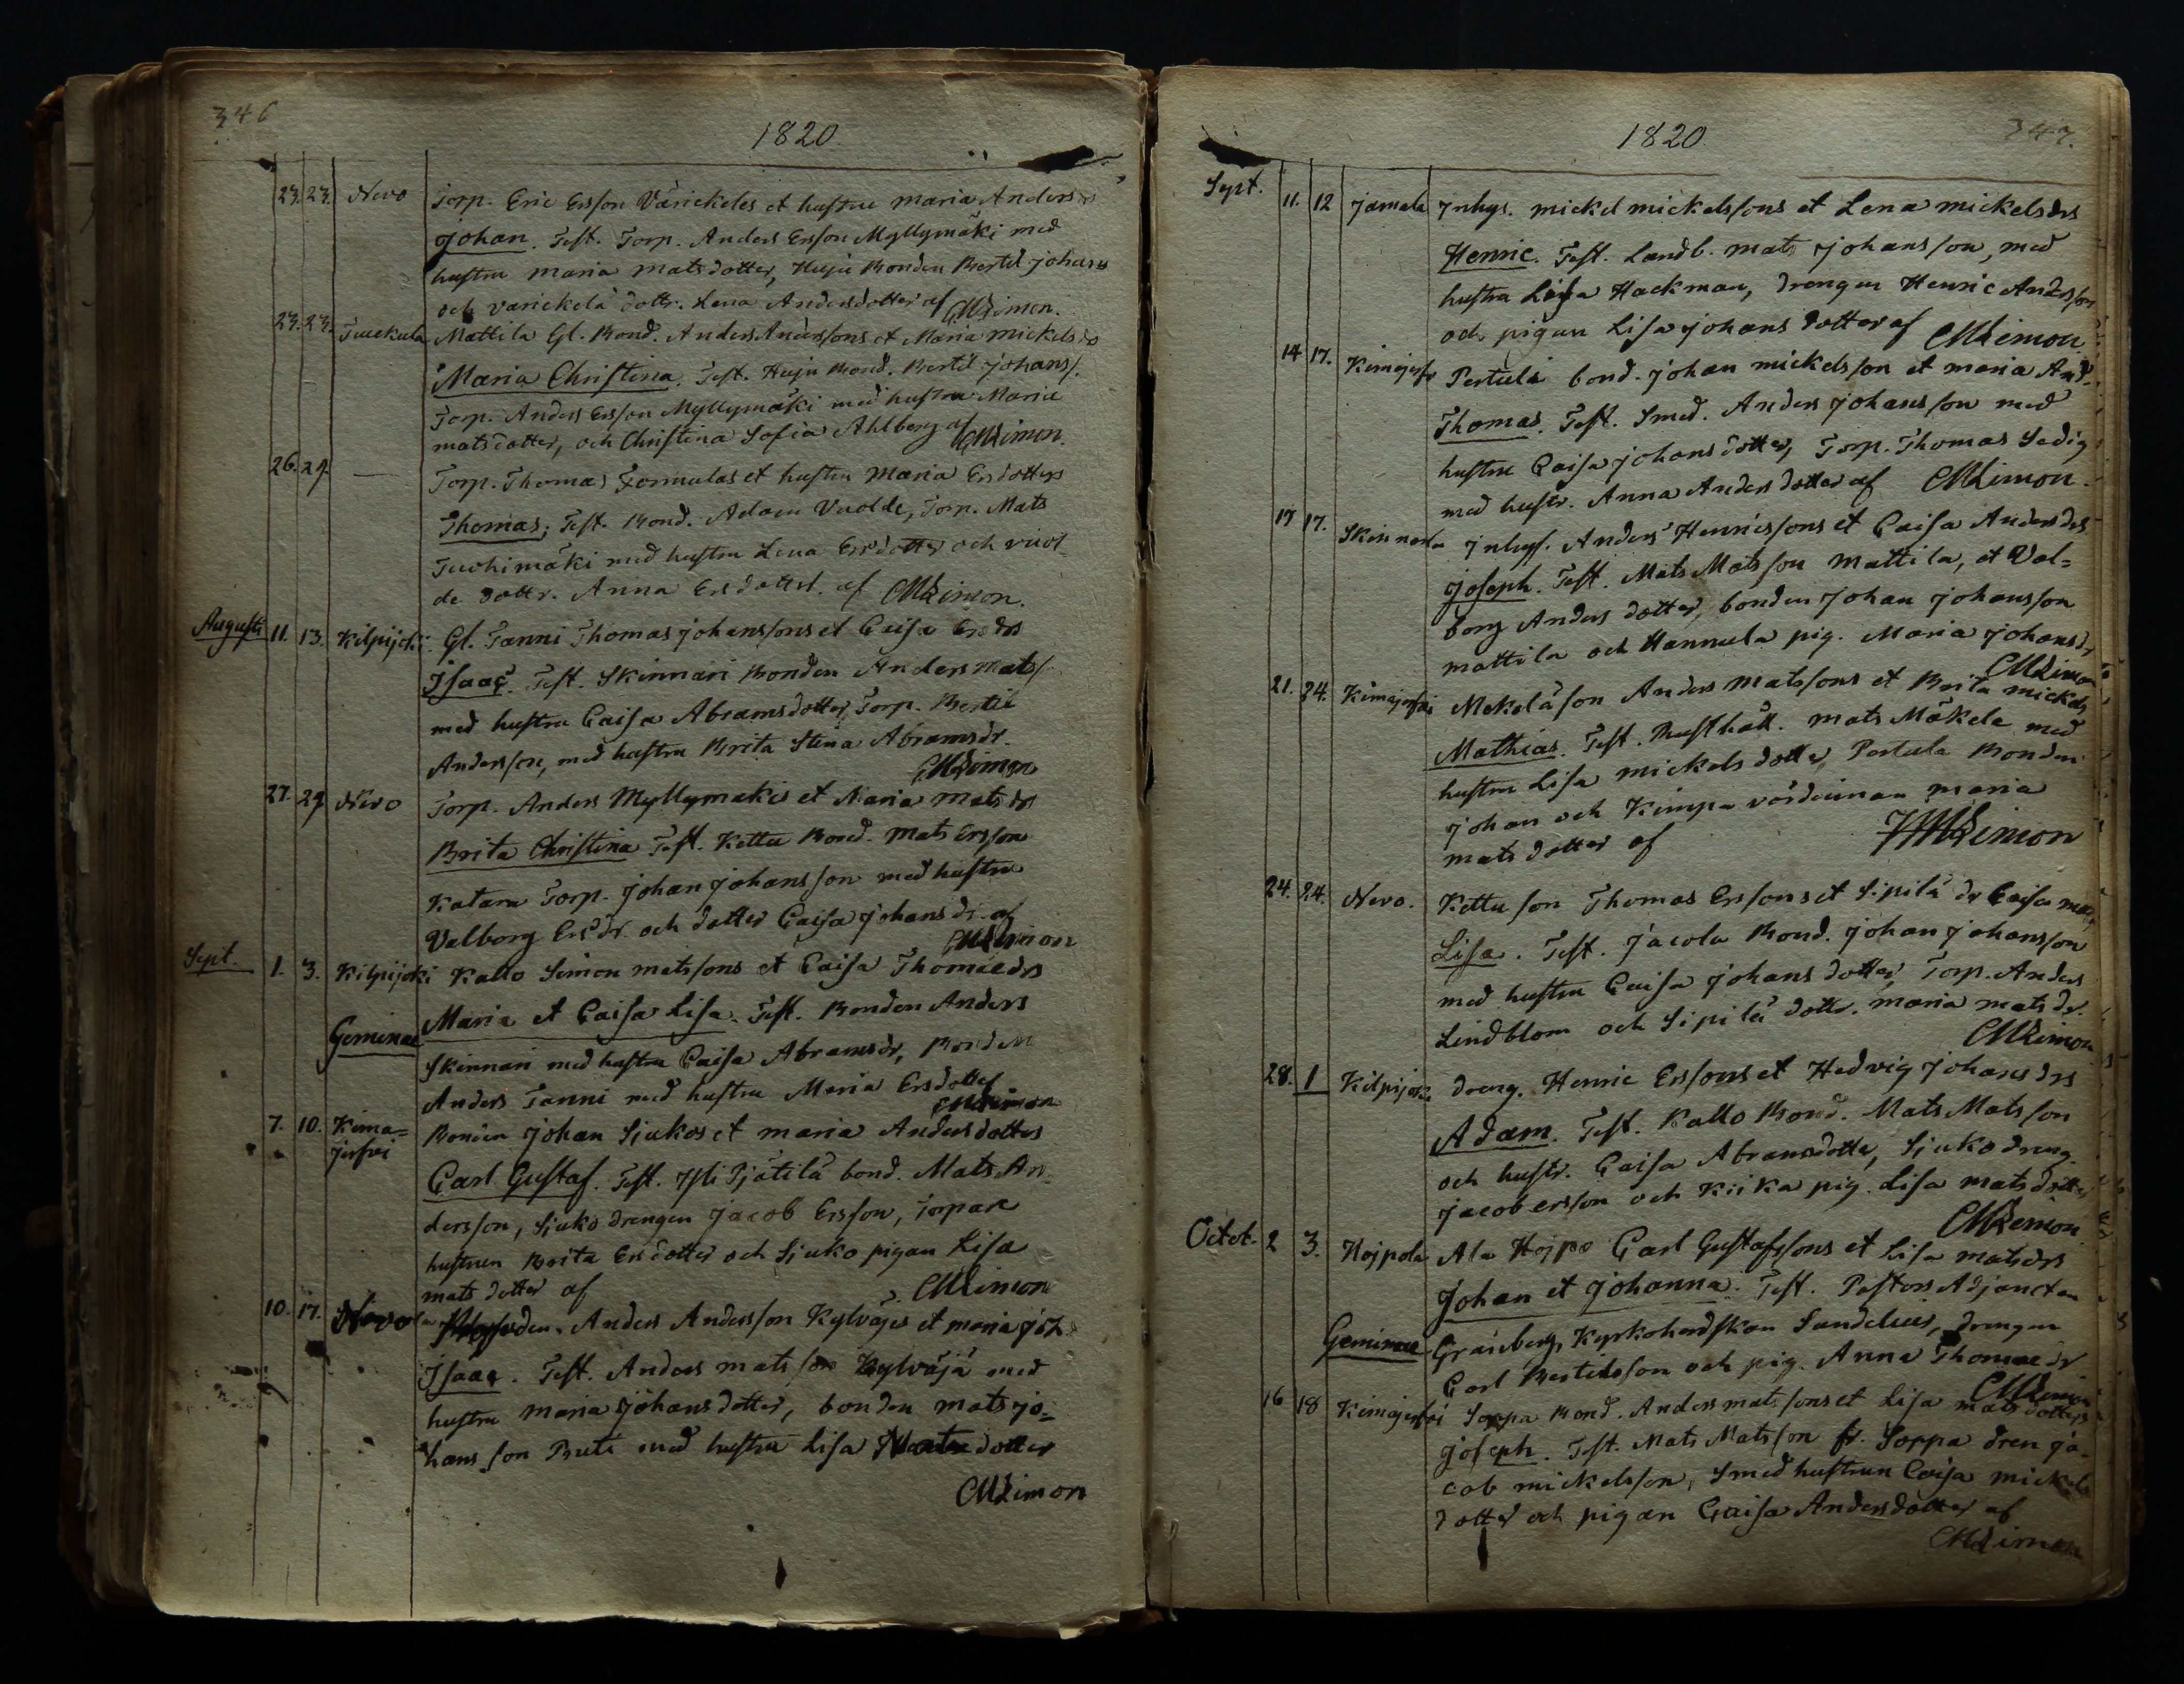 346
1820
23. 23. Nevo Torp. Eric Ersson Värickeles et hustru Maria Anders drs
Johan. Test. Torp. Anders Ersson Myllymäki med
hustru Maria Matsdotter, Huju Bonden Bertil Johans
och Varickelä dottr. Lena Andersdotter af CMLimon.
23. 23. Tuuckula Mattila Gl. Bond. Anders Anderssons et Maria Mickels drs
Maria Christina. Test. Huju Bond. Bertil Johanss.
Torp. Anders Ersson Myllymäki med hustru Maria
Matsdotter, och Christina Sofia Ahlberg af CMLimon.
26. 29. — Torp. Thomas et hustru Maria Ersdotters
Thomas; Test. Bond. Adam Vuolde, Torp. Mats
Tuohimäki med hustru Lena Ersdotter och Vuol-
de dottr. Anna Ersdotter. af CMLimon.
Augusti 11. 13. Kilpijoki Gl. Tanni Thomas Johanssons et Caisa Ersdrs
Isaac. Test. Skinnari Bonden Anders Matss.
med hustru Caisa Abramsdotter, Torp. Bertil
Andersson, med hustru Brita Stina Abramsdr.
CMLimon
27. 29 Nevo Torp. Anders Myllymäkis et Maria Matsdrs
Brita Christina Test. Kettu Bond. Mats Ersson
Katara Torp. Johan Johansson med hustru
Valborg Ersdr. och dotter Caisa Johansdr. af
CMLimon
Sept. 1. 3. Kilpijoki Kallo Simon Matssons et Caisa Thomaedrs
Geminae Maria et Caisa Lisa. Test. Bonden Anders
Skinnari med hustru Caisa Abramsdr, Bonden
Anders Tanni med hustru Maria Ersdotter
CMLimon
7. 10. Kima= Bonden Johan Sjukos et Maria Andersdotters
jerfvi Carl Gustaf. Test. Pjätilä bond. Mats An-
dersson, Sjuko drengen Jacob Ersson, Torpare
hustrun Brita Ersdotter och Sjuko pigan Lisa
Matsdotter af CMLimon
10. 17. Nevo Anders Andersson Kylväjes et Maria Joh.
Isaac. Test. Anders Matsson Kylväjä med
hustru Maria Johansdotter, bonden Mats Jo=
hansson med hustru Lisa dotter
CMLimon
1820
347.
Sept. 11. 12 Jamala Inhys. Mickel Mickelssons et Lena Mickelsdrs
Henric. Test. Landb. Mats Johansson, med
hustru Lisa Hackman, drengen Henric Andersson
och pigan Lisa Johansdotter af CMLimon
14 17. Kimajerfvi Pertula bond. Johan Mickelsson et Maria And.
Thomas. Test. Smed. Anders Johansson med
hustru Caisa Johansdotter, Torp. Thomas Sedig
med hustr. Anna Andersdotter af CMLimon.
17 17. Skinnarla Inhys. Anders Henricssons et Caisa Andersdrs
Joseph. Test. Mats Matsson Mattila, et Val=
borg Andersdotter, bonden Johan Johansson
Mattila och Hannula pig. Maria Johansdr
CMLimon
21. 24. Kimajerfvi Mekelä son Anders Matssons et Brita Mickels
Mathias. Test. Rusthåll. Mats Mäkele med
hustru Lisa Mickelsdotter, Pertula Bonden
Johan och Kimpa värdinnan Maria
Matsdotter af CMLimon
24. 24. Nevo. Kettu son Thomas Erssons et Sipilä dr Caisa Mats
Lisa. Test. Jacola Bond. Johan Johansson
med hustru Caisa Johansdotter, Torp. Anders
Lindblom och Sipilä dottr. Maria Matsdr.
CMLimon
28. 1 Kilpijoki dreng. Henric Erssons et Hedvig Johansdrs
Adam. Test. Kallo Bond. Mats Matsson
och hustr. Caisa Abramsdotter, Sjuko dreng
Jacob Ersson och Kiika pig. Lisa Matsdotter
CMLimon
Octob. 2 3. Hojpola Ala Hojpo Carl Gustafssons et Lisa Matsdrs
Johan et Johanna. Test. Pastors Adjuncten
Geminae Gränberg, Kyrkoherdskan Sundelius, drengen
Carl Bertelsson och pig. Anna Thomaedr
CMLimon
16 18 Kimajerfvi Soppa Bond. Anders Matssons et Lisa Matsdotters
Joseph. Test. Mats Matsson fr. Soppa dren Ja-
cob Mickelsson, Smed hustrun Caisa Mickels
dotter och pigan Caisa Andersdotter af
CMLimon